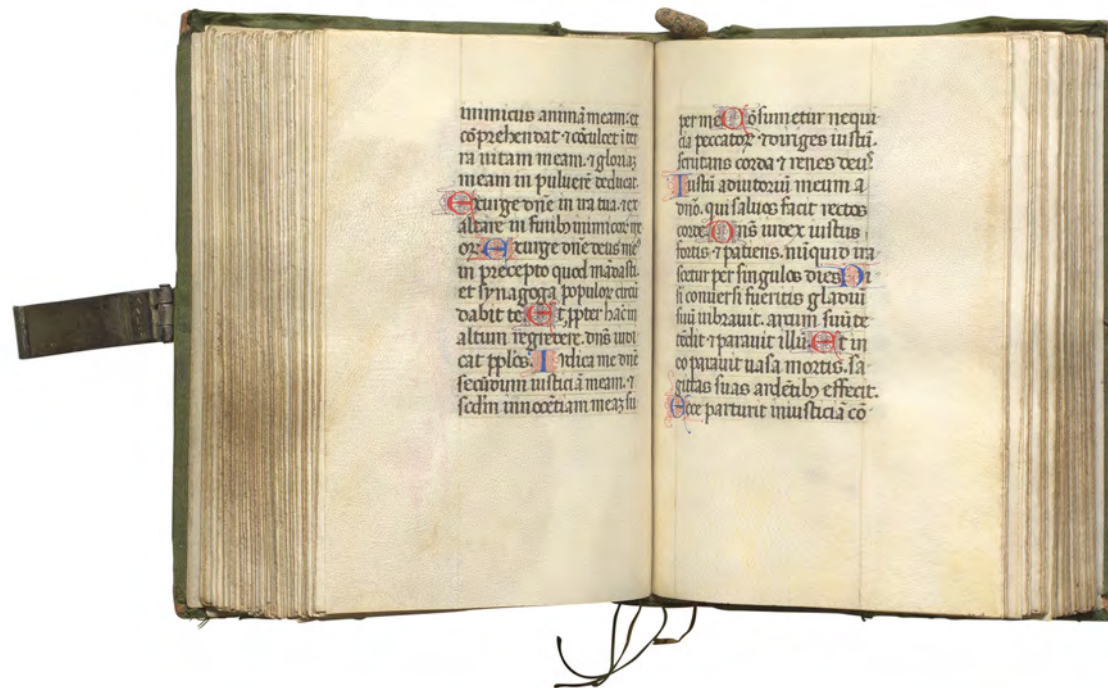 inimicus animā meam: et
cōprehendat ⁊ cōculcet i ter
ra uitam meam. ⁊ gloriaꝫ
meam in puluerē deducat.
Exurge dn̄e in ira tua. ⁊ ex
altare in finibꝫ inimicoꝝ me
oꝝ. Exurge dn̄e deus meꝰ
in precepto quod mādasti.
et synagoga populoꝝ circū
dabit te. Et ꝓpter hāc in
altum regredere. dn̄s iudi
cat ppl̄os. Iudica me dn̄e
secūdum iusticiā meam. ⁊
scdm̄ innocētiam meaꝫ su
per me Cōsumetur nequi
cia peccatoꝝ ⁊ diriges iustū.
scrutans corda ⁊ renes deuſ.
Iustū adiutoriū meum a
dn̄o. qui saluos facit rectos
corde. Dn̄s iudex iustus
fortis ⁊ patiens. nūquid ira
scetur per singulos dies Ni
si conuersi fueritis gladiū
suū uibrauit. arcum suū te
tēdit ⁊ parauit illū. Et in
eo parauit uasa mortis. sa
gittas suas ardētibꝫ effecit.
Ecce parturit iniusticiā cō